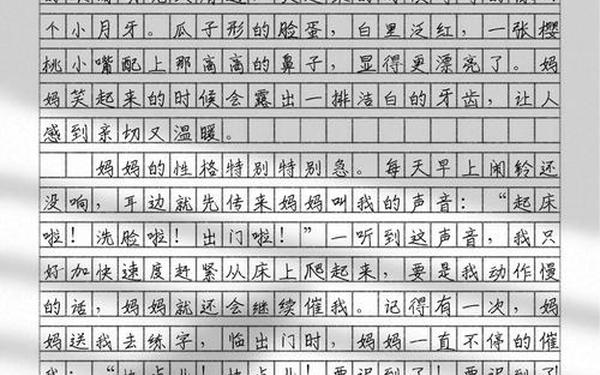 个小月牙。瓜子形的脸蛋，白里泛红，一张樱
桃小嘴配上那高高的鼻子，显得更漂亮了。妈
妈笑起来的时候会露出一排洁白的牙齿，让人
感到亲切又温暖。
妈妈的性格特别特别急。每天早上闹铃还
没响，耳边就先传来妈妈叫我的声音：“起床
啦！洗脸啦！出门啦！”一听到这声音，我只
好加快速度赶紧从床上爬起来，要是我动作慢
的话，妈妈就还会继续催我。记得有一次，妈
妈送我去练字，临出门时，妈妈一直不停的催
我：“快点儿！快点儿！要迟到了！要迟到了